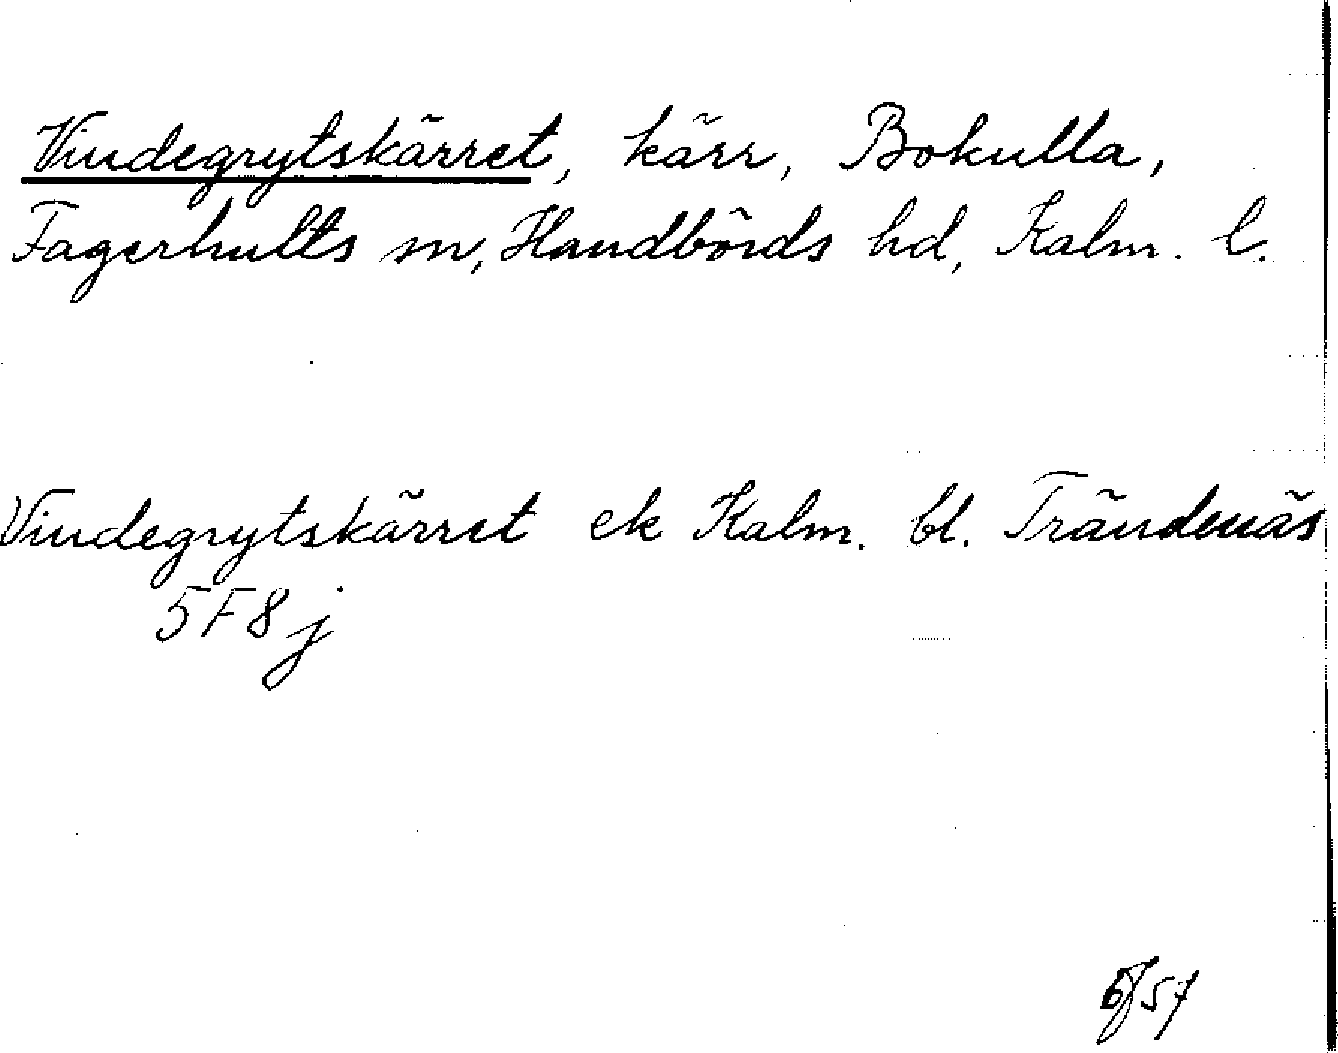 Vindegrytskärret, kärr, Bokulla,
Fagerhults sn, Handbörds hd, Kalm. l.
Vindegrytskärret ek Kalm. bl. Trändenäs
5F8j